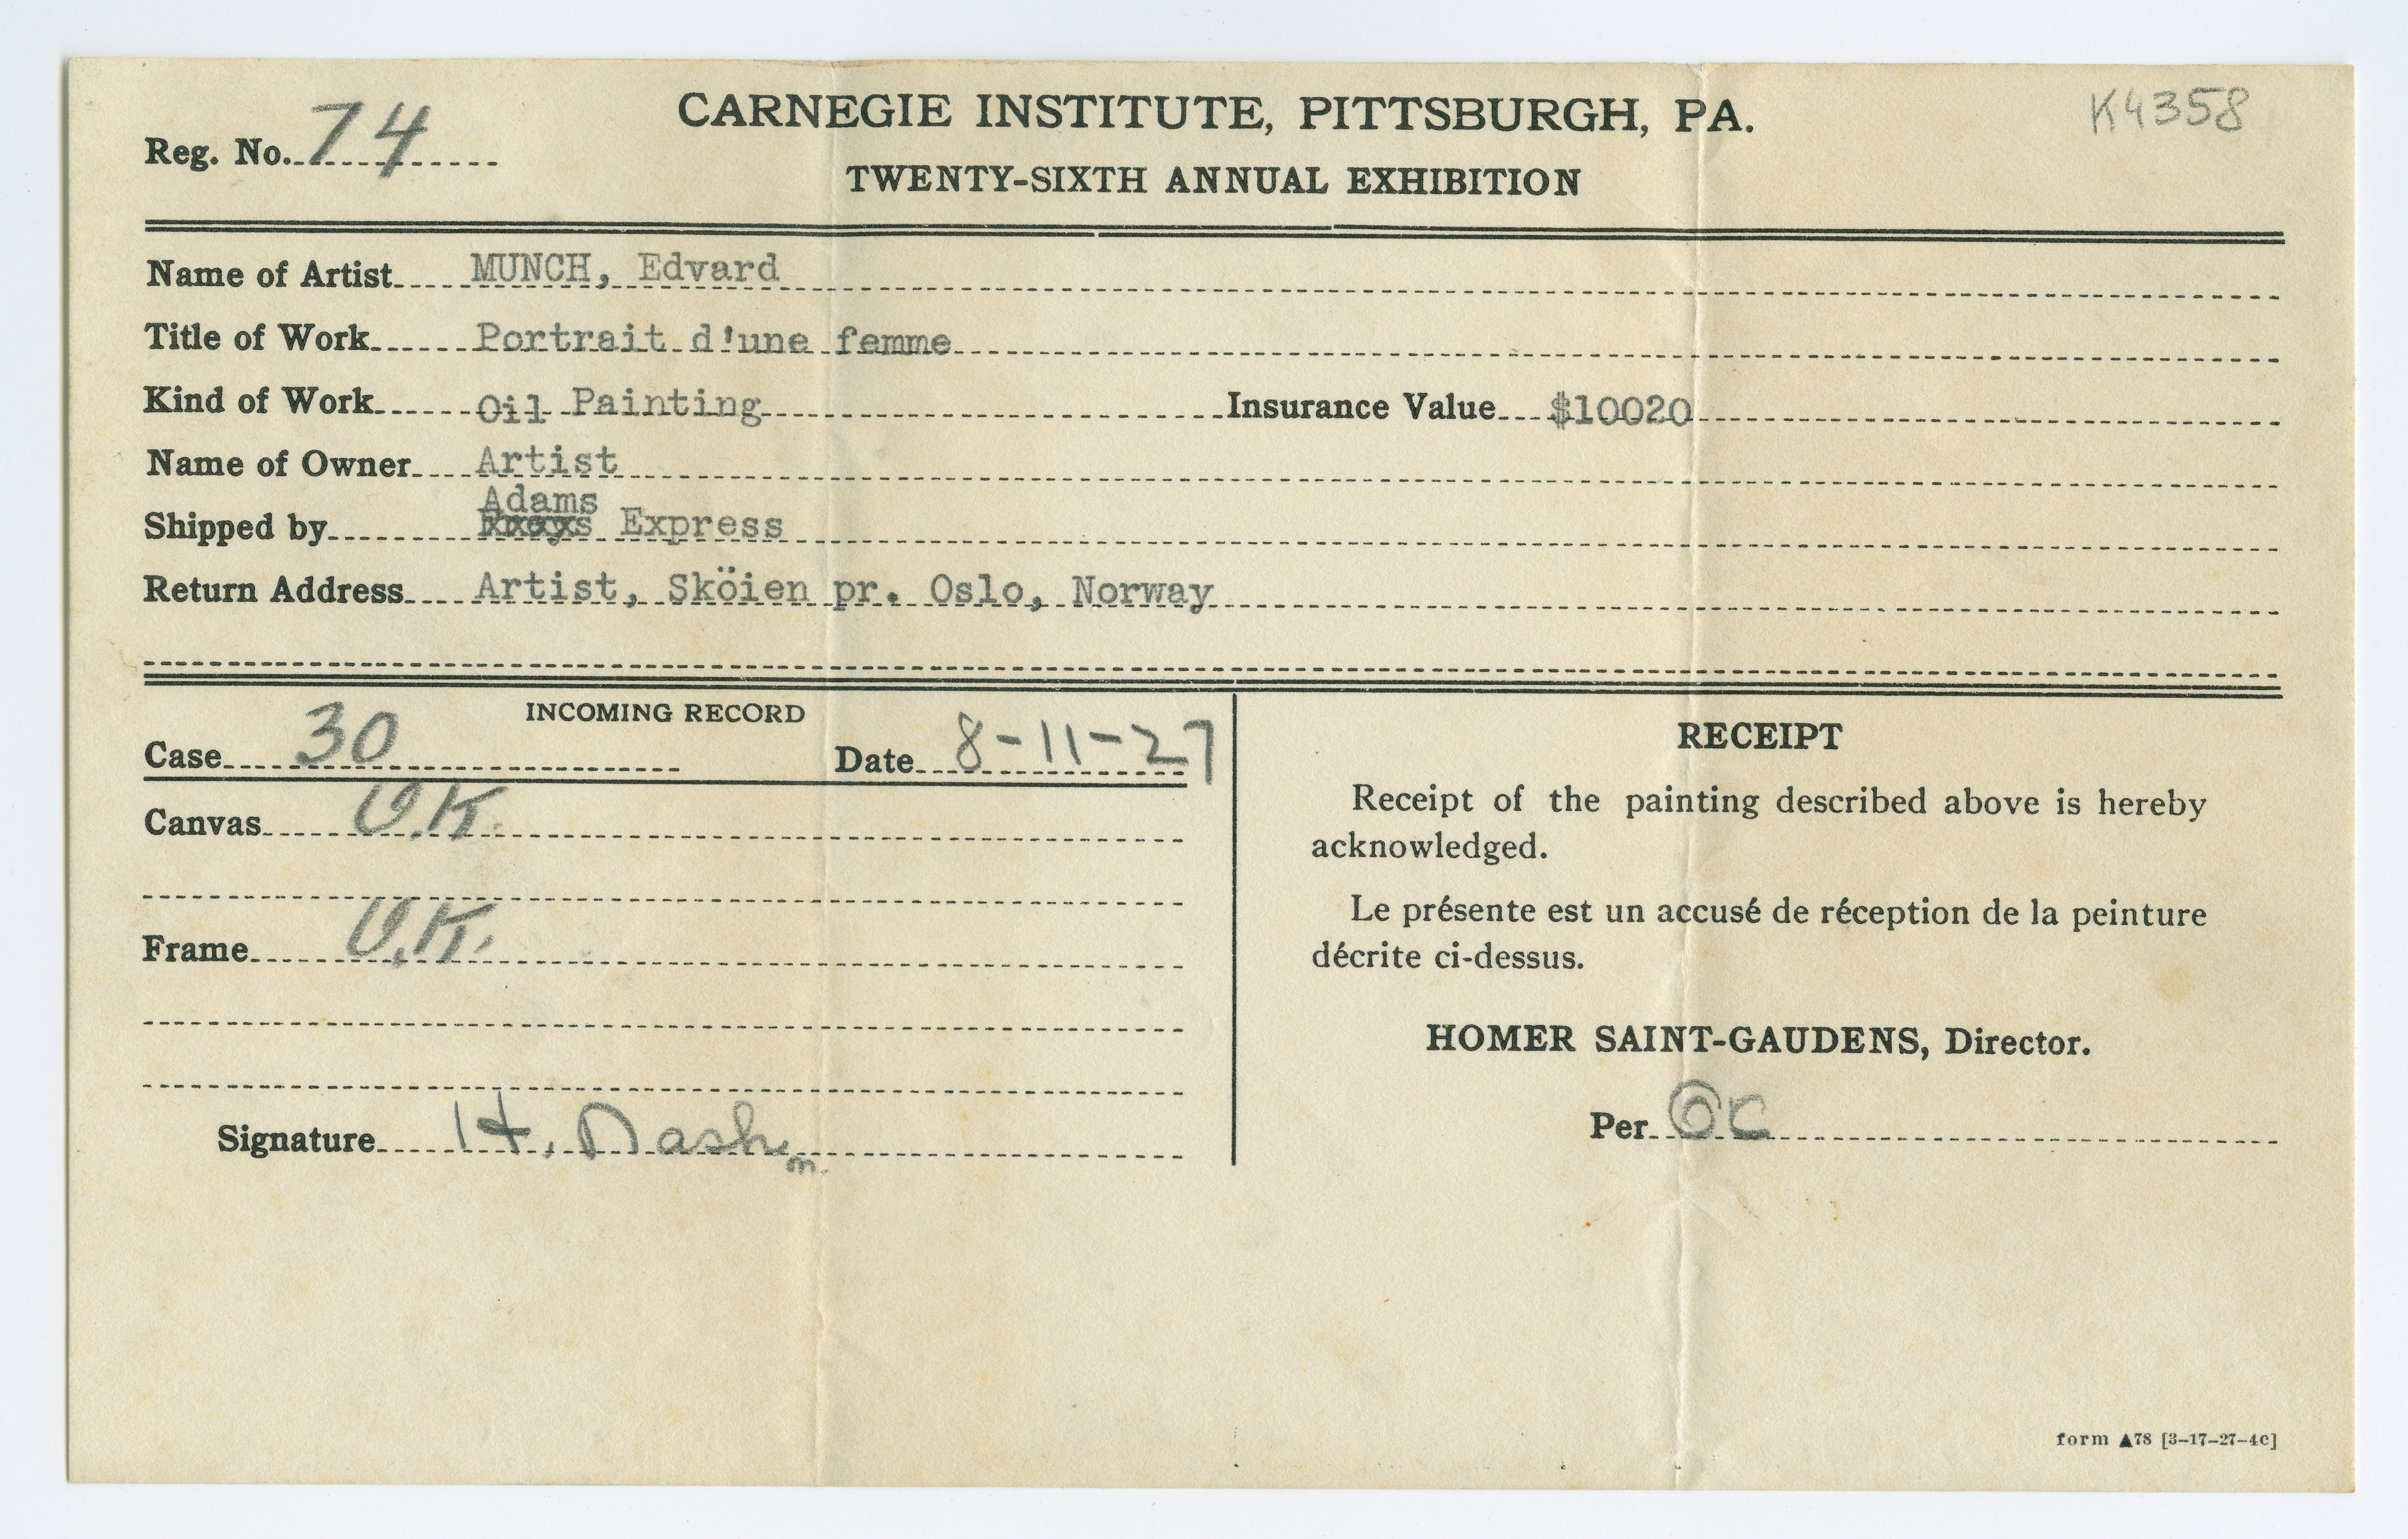 CARNEGIE INSTITUTE, PITTSBURGH, PA.
K4358
Reg. No. 74
TWENTY-SIXTH ANNUAL EXHIBITION
Name of Artist MUNCH, Edvard
Title of Work Portrait d'une femme
Kind of Work Oil Painting Insurance Value $10020
Name of Owner Artist
Adams
Shipped by Express
Return Address Artist, Sköien pr. Oslo, Norway
INCOMING RECORD
Case 30 Date 8-11-27
Canvas O.K.
Frame O.K.
Signature H. Nash m.
RECEIPT
Receipt of the painting described above is hereby
acknowledged.
Le présente est un accusé de réception de la peinture
décrite ci-dessus.
HOMER SAINT-GAUDENS, Director.
Per OC
form ▲78 [3-17-27-4C]